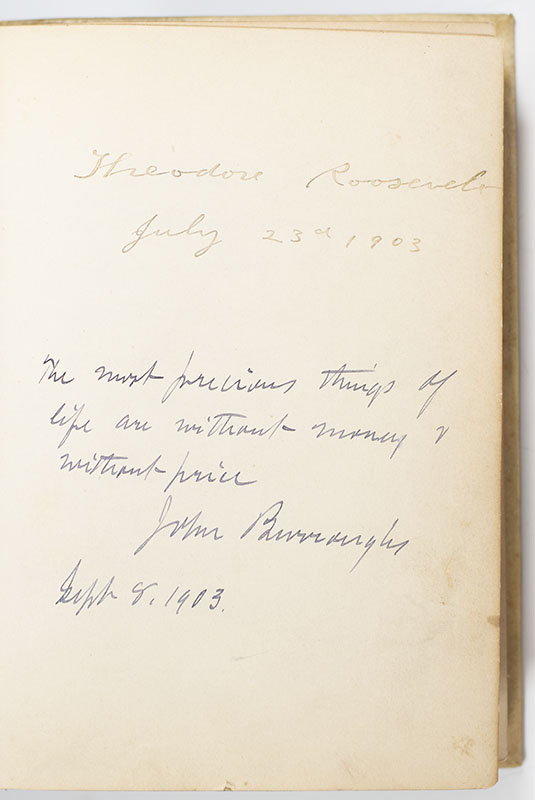 Theodore Roosevelt
July 23rd 1903
The most precious things of
life are without money &
without price
John Burroughs
Sept 8. 1903.